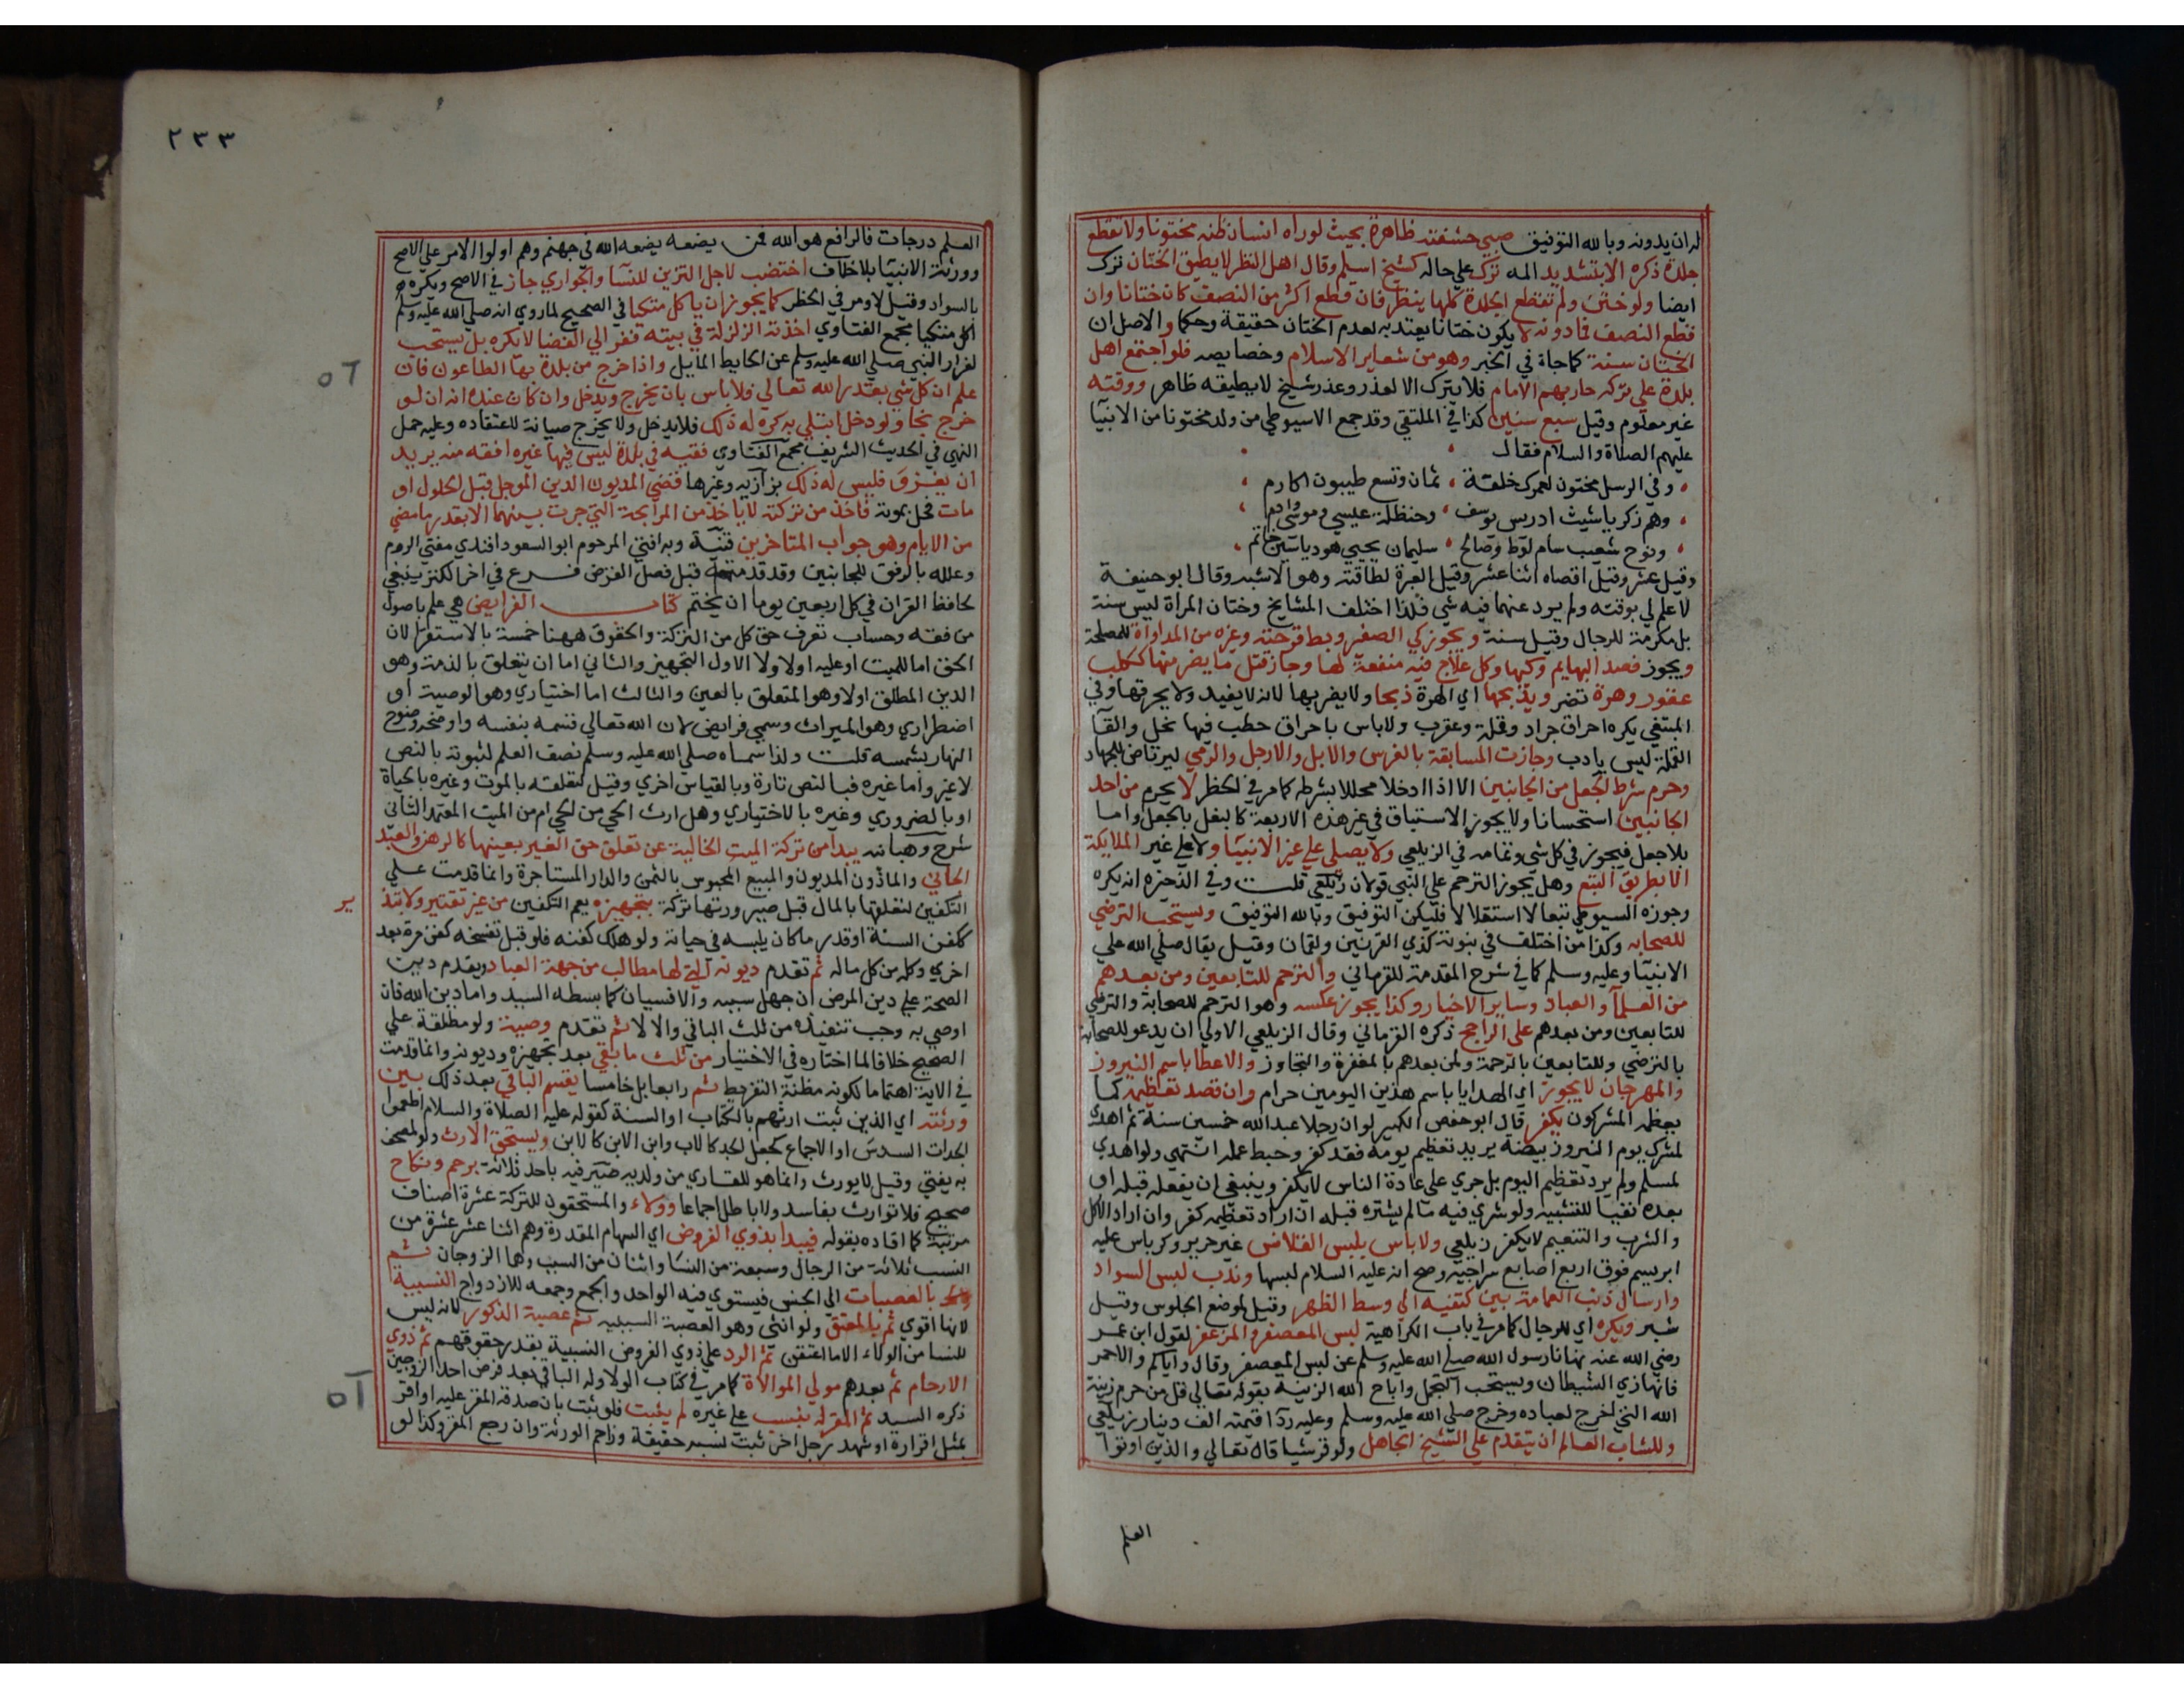 له ان يدونه وبالله التوفيق صبي حشفته ظاهرة بحيث لوراه انسان ظنه مختونا ولا تقطع
جلدة ذكره الا بتشديد المه ترك علي حاله كشيخ اسلم وقال اهل النظر لا يطيق الختان ترك
ايضا ولو ختن ولم تقطع الجلدة كلها ينظر فان قطع اكثر من النصف كان ختانا وان
قطع النصف فما دونه لا يكون ختانا يعتد به لعدم الختان حقيقة وحكما والاصل ان
الختان سنة كما جاء في الخبر وهو من شعاير الاسلام وخصايصه فلو اجتمع اهل
بلدة علي تركه حاربهم الامام فلا يترك الا لعذر وعذر شيخ لا يطيقه ظاهر ووقته
غير معلوم وقيل سبع سنين كذا في الملتقي وقد جمع الاسيوطي من ولد مختونا من الانبيا
عليهم الصلاة والسلام فقال
وفي الرسل مختون لعمرك خلقة ثمان وتسع طيبون اكارم
وهم زكريا شيث ادريس يوسف وحنظلة عيسي وموسي وادم
ونوح شعيب سام لوط وصالح سليمان يحيي هود ياسين خاتم
وقيل عشر وقيل اقصاه اثنا عشر وقيل العبرة لطاقته وهو الاشبه وقال ابو حنيفة
لا علم لي بوقته ولم يرد عنهما فيه شي فلذا اختلف المشايخ وختان المراة ليس سنة
بل مكرمة للرجال وقيل سنة ويجوز كي الصغير وبط قرحته وغيره من المداواة للمصلحة
ويجوز فصد البهايم وكيها وكل علاج فيه منفعة لها وجاز قتل ما يضر منها ككلب
عقور وهرة تضر ويذبحها اي الهرة ذبحا ولا يضربها لانه لا يفيد ولا يحرقها وفي
المبتغي يكره احراق جراد وقملة وعقرب ولا باس باحراق حطب فيها نمل والقا
القملة ليس بادب وجازت المسابقة بالفرس والابل والارجل والرمي ليرتاض للجهاد
وحرم شرط الجعل من الجانبين الا اذا ادخلا محللا بشرطه كما مر في الحظر لا يحرم من احد
الجانبين استحسانا ولا يجوز الاستباق في غير هذه الاربعة كالبغل بالجعل واما
بلا جعل فيجوز في كل شي وتمامه في الزيلعي ولا يصلي علي غير الانبيا ولا علي غير الملايكة
الا بطريق التبع وهل يجوز الترحم علي النبي قولان زيلعي قلت وفي الذخيرة انه يكره
وجوزه السيوطي تبعا لا استقلالا فليكن التوفيق وبالله التوفيق ويستحب الترضي
للصحابه وكذا من اختلف في نبوته كذي القرنين ولقمان وقيل يقال صلي الله علي
الانبيا وعليه وسلم كما في شرح المقدمة للقرماني والترحم للتابعين ومن بعدهم
من العلما والعباد وساير الاخيار وكذا يجوز عكسه وهو الترحم للصحابة والترضي
للتابعين ومن بعدهم علي الراجح ذكره القرماني وقال الزيلعي الاولي ان يدعو للصحابة
بالترضي وللتابعين بالرحمة ولمن بعدهم بالمغفرة والتجاوز والاعطا باسم النيروز
والمهرجان لا يجوز اي الهدايا باسم هذين اليومين حرام وان قصد تعظيمه كما
يعظمه المشركون يكفر قال ابو حفص الكبير لو ان رجلا عبد الله خمسين سنة ثم اهدي
لمشرك يوم النيروز بيضة يريد تعظيم يومه فقد كفر وحبط عمله انتهي ولو اهدي
لمسلم ولم يرد تعظيم اليوم بل جري علي عادة الناس لا يكفر وينبغي ان يفعله قبله او
بعده نفيا للتشبيه ولو شري فيه ما لم يشتره قبله ان اراد تعظيمه كفر وان اراد الاكل
والشرب والتنعيم لا يكفر زيلعي ولا باس بلبس القلانس غير حرير وكرباس عليه
ابريسم فوق اربع اصابع سراجيه وصح انه عليه السلام لبسها وندب لبس السواد
وارسال ذنب العمامة بين كتفيه الي وسط الظهر وقيل لموضع الجلوس وقيل
شبر ويكره اي للرجال كما مر في باب الكراهية لبس المعصفر والمزعفر لقول ابن عمر
رضي الله عنه نهانا رسول الله صلي الله عليه وسلم عن لبس المعصفر وقال واياكم والاحمر
فانها زي الشيطان ويستحب التجمل واباح الله الزينة بقوله تعالي قل من حرم زينة
الله التي اخرج لعباده وخرج صلي الله عليه وسلم وعليه ردا قيمته الف دينار زيلعي
وللشاب العالم ان يتقدم علي الشيخ الجاهل ولو قرشيا قال تعالي والذين اوتوا
العلم
٢٣٣
العلم درجات فالرافع هو الله فمن يضعه يضعه الله في جهنم وهم اولوا الامر علي الاصح
وورثة الانبيا بلا خلاف اختضب لاجل التزين للنسا والجواري جاز في الاصح ويكره
بالسواد وقيل لا ومر في الحظر كما يجوز ان ياكل متكيا في الصحيح لما روي انه صلي الله عليه وسلم
اكل متكيا مجمع الفتاوي اخذته الزلزلة في بيته ففر الي الفضا لا يكره بل يستحب
لفرار النبي صلي الله عليه وسلم عن الحايط المايل واذا خرج من بلدة بها الطاعون فان
علم ان كل شي بقدر الله تعالي فلا باس بان يخرج ويدخل وان كان عنده انه ان لو
خرج نجا ولو دخل ابتلي به كره له ذلك فلا يدخل ولا يخرج صيانة لاعتقاده وعليه حمل
النهي في الحديث الشريف مجمع الفتاوي فقيه في بلدة ليس فيها غيره افقه منه يريد
ان يغزو فليس له ذلك بزازيه وغيرها قضي المديون الدين الموجل قبل الحلول او
مات فحل بموته فاخذ من تركته لا ياخذ من المرابحة التي جرت بينهما الا بقدر ما مضي
من الايام وهو جواب المتاخرين قنية وبه افتي المرحوم ابو السعود افندي مفتي الروم
وعلله بالرفق للجانبين وقد قدمته قبل فصل القرض فرع في اخر الكنز ينبغي
لحافظ القران في كل اربعين يوما ان يختم كتاب الفرايض هي علم باصول
من فقه وحساب تعرف حق كل من التركة والحقوق ههنا خمسة بالاستقرا لان
الحق اما للميت او عليه او لا ولا الاول التجهيز والثاني اما ان يتعلق بالذمة وهو
الدين المطلق او لا وهو المتعلق بالعين والثالث اما اختياري وهو الوصية او
اضطراري وهو الميراث وسمي فرايض لان الله تعالي قسمه بنفسه واوضحه وضوح
النهار بشمسه قلت ولذا سماه صلي الله عليه وسلم نصف العلم لثبوته بالنص
لا غير واما غيره فبالنص تارة وبالقياس اخري وقيل لتعلقه بالموت وغيره بالحياة
او بالضروري وغيره بالاختياري وهل ارث الحي من الحي ام من الميت المعتمد الثاني
شرح وهبانيه يبدا من تركة الميت الخالية عن تعلق حق الغير بعينها كالرهن والعبد
الجاني والماذون المديون والمبيع المحبوس بالثمن والدار المستاجرة وانما قدمت علي
التكفين لتعلقها بالمال قبل صيرورتها تركة بتجهيزه يعم التكفين من غير تقتير ولا تبذ
ير
ككفن السنة او قدر ما كان يلبسه في حياته ولو هلك كفنه فلو قبل تفسخه كفن مرة بعد
اخري وكله من كل ماله ثم تقدم ديونه التي لها مطالب من جهة العباد ويقدم دين
الصحة علي دين المرض ان جهل سببه والا فسيان كما بسطه السيد واما دين الله فان
اوصي به وجب تنفيذه من ثلث الباقي والا لا ثم تقدم وصيته ولو مطلقة علي
الصحيح خلافا لما اختاره في الاختيار من ثلث ما بقي بعد تجهيزه وديونه وانما قدمت
في الاية اهتماما لكونه مظنة التفريط ثم رابعا بل خامسا يقسم الباقي بعد ذلك بين
ورثته اي الذين ثبت ارثهم بالكتاب او السنة كقوله عليه الصلاة والسلام اطعموا
الجدات السدس او الاجماع كجعل الجد كالاب وابن الابن كالابن ويستحق الارث ولو لمصحف
به يفتي وقيل لا يورث وانما هو للقاري من ولديه صيرفيه باحد ثلاثة برحم ونكاح
صحيح فلا توارث بفاسد ولا باطل اجماعا وولاء والمستحقون للتركة عشرة اصناف
مرتبة كما افاده بقوله فيبدا بذوي الفروض اي السهام المقدرة وهم اثنا عشر عشرة من
النسب ثلاثة من الرجال وسبعة من النسا واثنان من السبب وهما الزوجان ثم
بالعصبات ال للجنس فيستوي فيه الواحد والجمع وجمعه للازدواج النسبية
لانها اقوي ثم بالمعتق ولو انثي وهو العصبة السببية ثم عصبة الذكور لانه ليس
للنسا من الولاء الا ما اعتقن ثم الرد علي ذوي الفروض النسبية بقدر حقوقهم ثم ذوي
الارحام ثم بعدهم مولي الموالاة كما مر في كتاب الولا وله الباقي بعد فرض احد الزوجين
ذكره السيد ثم المقر له بنسب علي غيره لم يثبت فلو ثبت بان صدقه المقر عليه او اقر
بمثل اقراره او شهد رجل اخر ثبت نسبه حقيقة وزاحم الورثة وان رجع المقر وكذا لو